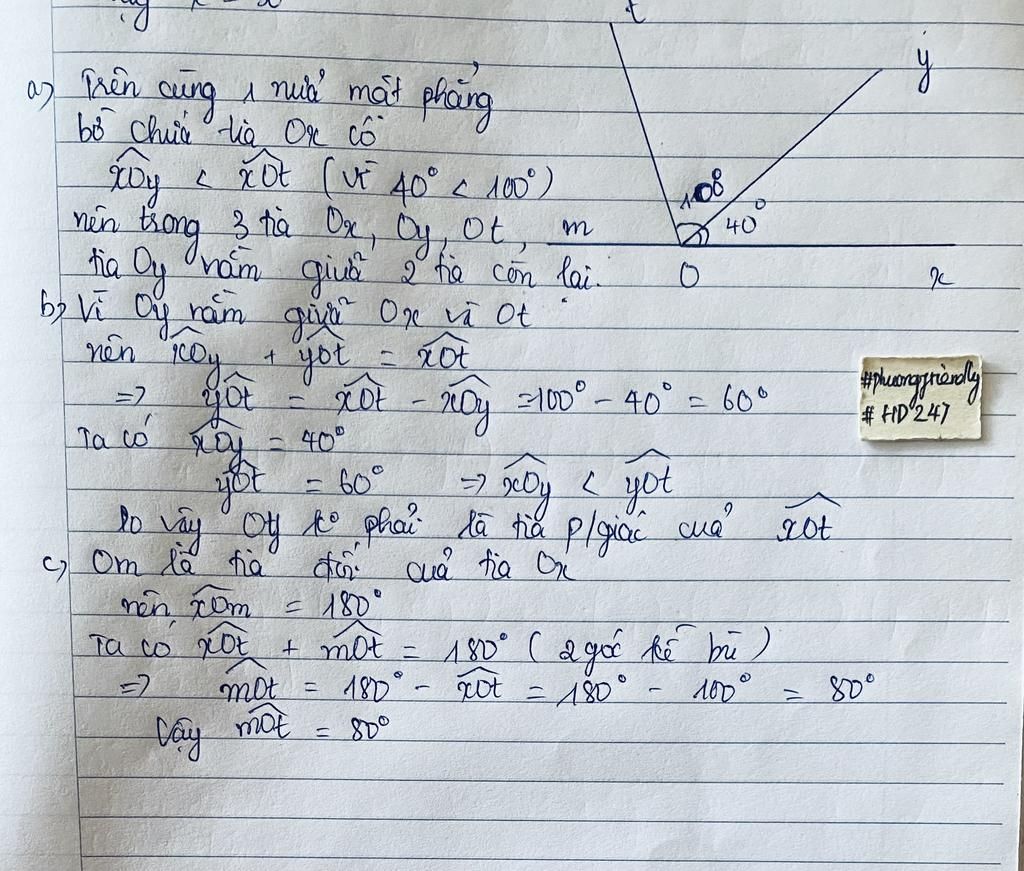 t
y
a) Trên cùng 1 nửa mặt phẳng
bờ chứa tia Ox có
xOy < xOt (vì 40° < 100°)
nên trong 3 tia Ox, Oy, Ot,
tia Oy nằm giữa 2 tia còn lại.
100°
40°
m
O
x
b) Vì Oy nằm giữa Ox và Ot
nên xOy + yOt = xOt
=> yOt = xOt - xOy = 100° - 40° = 60°
#phuongfriendly
# HD247
Ta có xOy = 40°
yOt = 60° => xOy < yOt
Do vậy Oy ko phải là tia p/giác của xOt
c) Om là tia đối của tia Ox
nên xOm = 180°
Ta có xOt + mOt = 180° (2 góc kề bù)
=> mOt = 180° - xOt = 180° - 100° = 80°
Vậy mOt = 80°